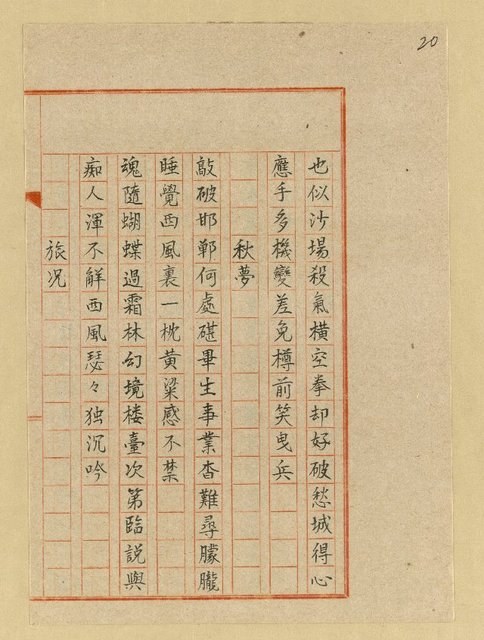 20
也似沙場殺氣橫空拳却好破愁城得心
應手多機變差免樽前笑曳兵
秋夢
敲破邯鄲何處碪畢生事業杳難尋朦朧
睡覺西風裏一枕黃粱感不禁
魂隨蝴蝶過霜林幻境楼臺次第臨説與
痴人渾不解西風瑟々独沉吟
旅况